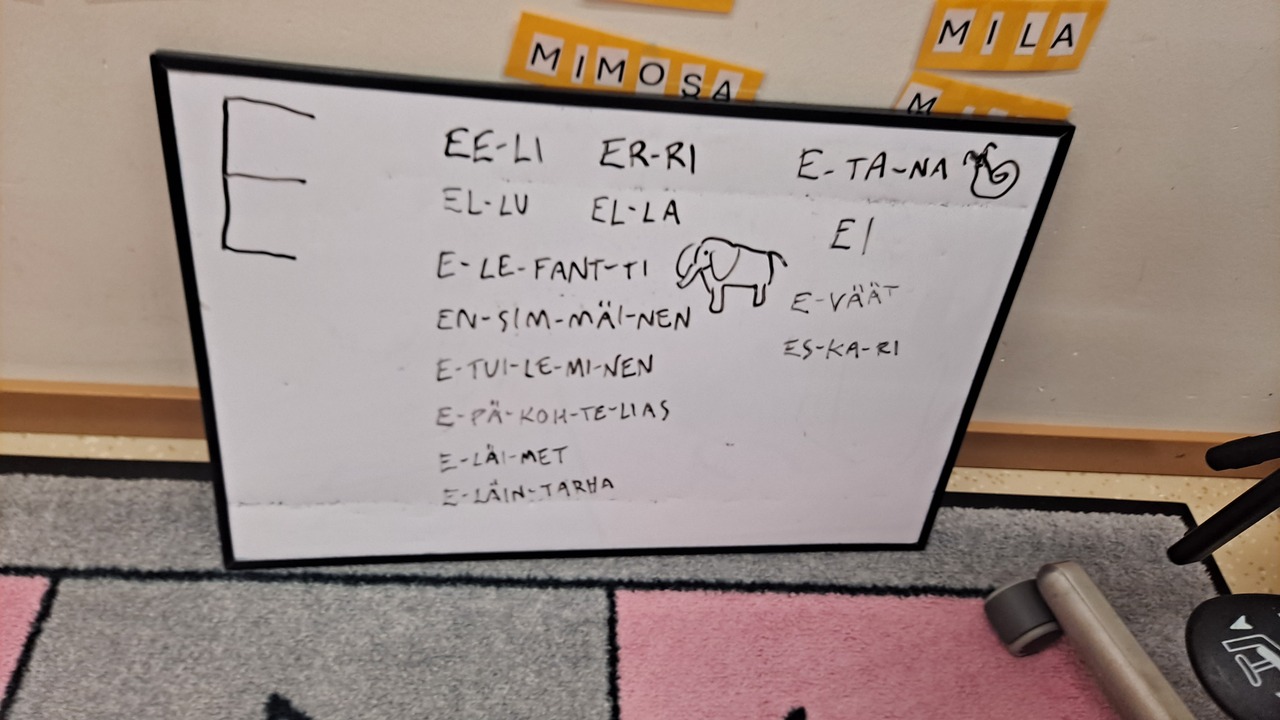 MIMOSA
MILA
E
EE-LI ER-RI
EL-LU EL-LA
E-LE-FANT-TI
EN-SIM-MÄI-NEN
E-TUI-LE-MI-NEN
E-PÄ-KOH-TE-LIAS
E-LÄI-MET
E-LÄIN-TARHA
E-TA-NA
EI
E-VÄÄT
ES-KA-RI